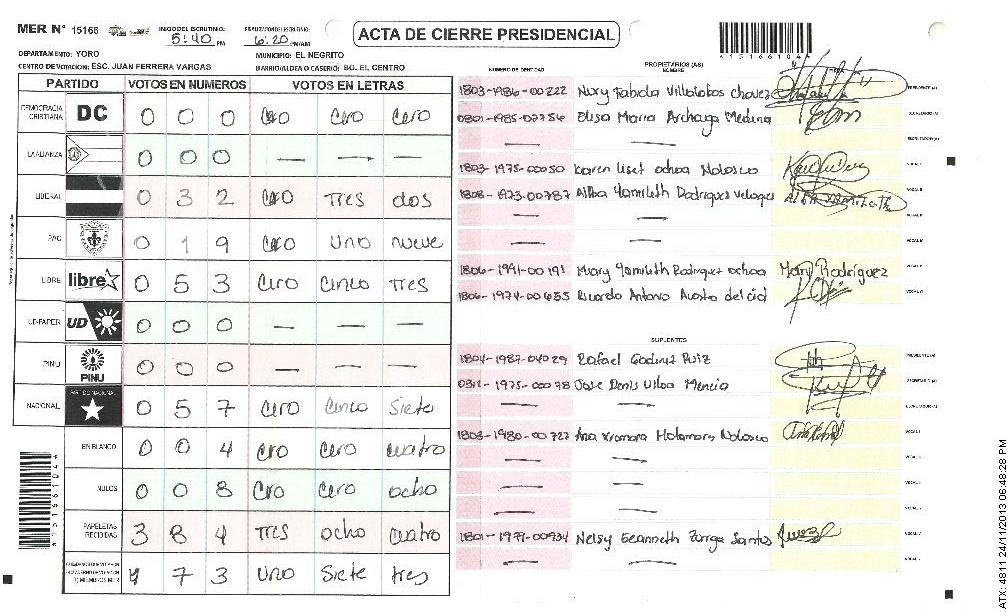 MER N° 15166
INICIO DEL ESCRUTINIO:
5:40 PM
FINALIZACION DEL ESCRUTINIO:
6:20 PM/AM
ACTA DE CIERRE PRESIDENCIAL
4151661044
DEPARTAMENTO: YORO
MUNICIPIO: EL NEGRITO
CENTRO DE VOTACION: ESC. JUAN FERRERA VARGAS
BARRIO/ALDEA O CASERIO: BO. EL CENTRO
PARTIDO VOTOS EN NUMEROS VOTOS EN LETRAS
DEMOCRACIA CRISTIANA DC 0 0 0 Cero Cero Cero
LA ALIANZA 0 0 0 — — —
LIBERAL 0 3 2 Cero Tres dos
PAC 0 1 9 Cero Uno nueve
LIBRE libre 0 5 3 Cero Cinco Tres
UD-FAPER UD 0 0 0 — — —
PINU PINU 0 0 0 — — —
NACIONAL 0 5 7 Cero Cinco Siete
EN BLANCO 0 0 4 Cro Cero cuatro
NULOS 0 0 8 Cro Cero ocho
PAPELETAS RECIBIDAS 3 8 4 Tres ocho cuatro
1 7 3 Uno Siete tres
NUMERO DE IDENTIDAD PROPIETARIOS (AS) NOMBRE
1803-1986-00222 Nury Fabiola Villalobos chavez PRESIDENTE (A)
0801-1985-02756 Elisa Maria Archaga Medina SECRETARIO (A)
— — ESCRUTADOR (A)
1803-1975-00050 Karen Liset ochoa Nolasco VOCAL I
1808-1973-00787 Alba Yamileth Rodriguez Velasquez VOCAL II
— —
— —
1806-1991-00191 Mary Yamileth Rodriguez ochoa Mary Rodríguez
1806-1974-00655 Ricardo Antonio Acosta del cid
SUPLENTES
1804-1987-04029 Rafael Godinez Ruiz PRESIDENTE (A)
0311-1975-00078 Jose Denis Ulloa Mencia SECRETARIO (A)
— — ESCRUTADOR (A)
1803-1980-00727 Ana Xiomara Matamoros Nolasco
— —
— —
— —
1801-1977-00934 Nelsy Geanneth Zuniga Santos
— —
ATX: 4811 24/11/2013 06:48:28 PM